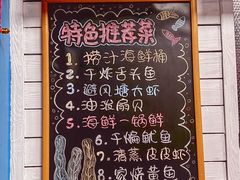 特色推荐菜
1. 捞汁海鲜桶
2. 干炸舌头鱼
3. 避风塘大虾
4. 油泼扇贝
5. 海鲜一锅鲜
6. 干煸鱿鱼
7. 清蒸皮皮虾
8. 家烧黄鱼